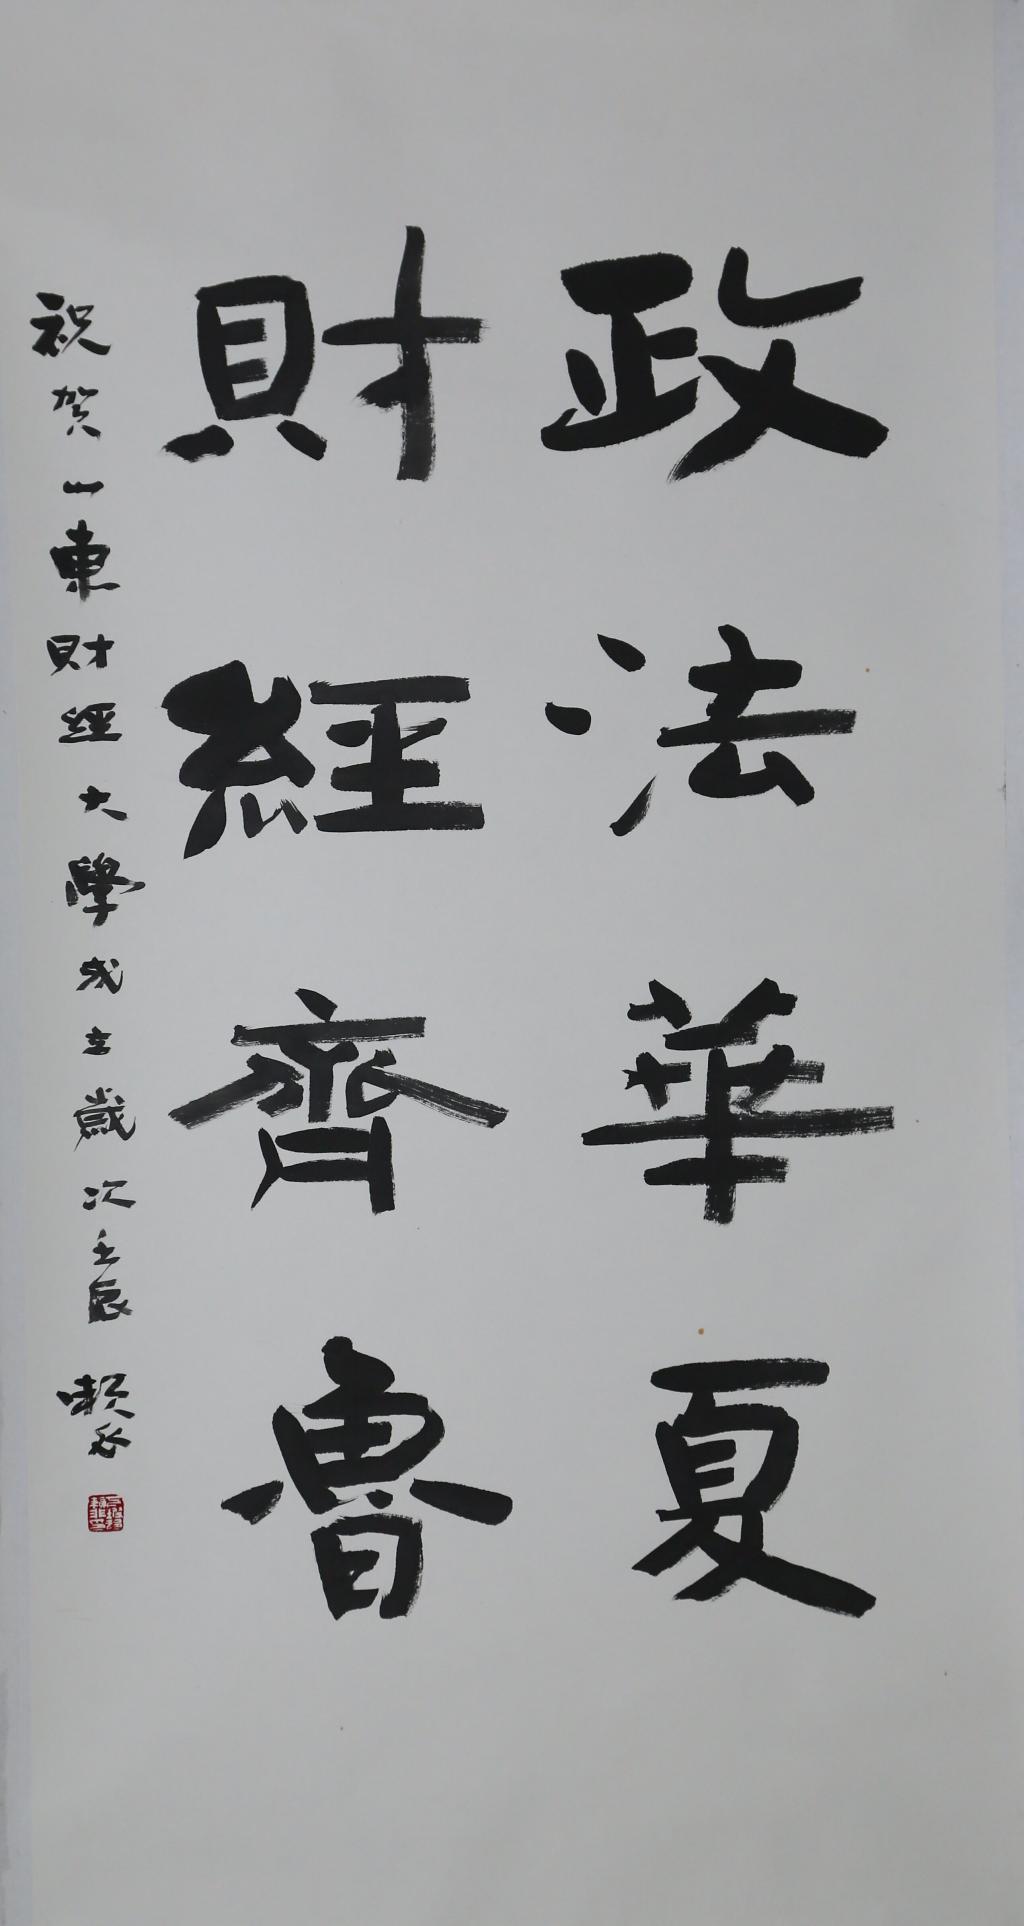 政法華夏
財經齊魯
祝贺山東财經大學成立歲次壬辰